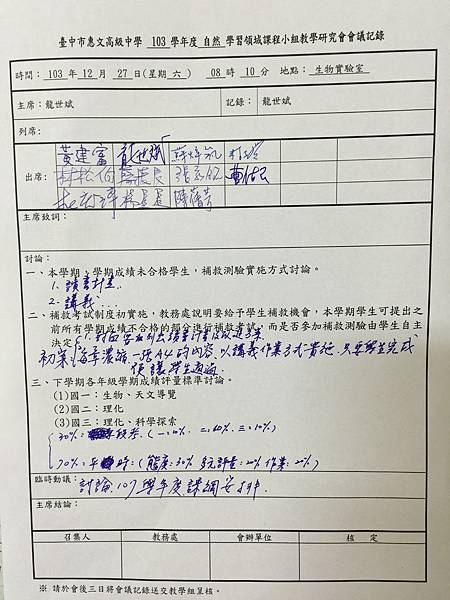 臺中市惠文高級中學 103 學年度 自然 學習領域課程小組教學研究會會議記錄
時間：103 年 12 月 27 日(星期 六 ) 08 時 10 分 地點：生物實驗室
主席：龍世斌 記錄：龍世斌
列席：
黃建富 龍世斌
出席：
主席致詞：
討論：
一、本學期、學期成績未合格學生，補救測驗實施方式討論。
1. 讀書計畫..
2. 講義...
二、補救考試制度初實施，教務處說明要給予學生補救機會，本學期學生可提出之
前所有學期成績不合格的部分進行補救考試，而是否參加補救測驗由學生自主
決定。
初案：每章濃縮一張A4的內容 以講義作業方式實施，只要學生完成
便讓學生通過.
三、下學期各年級學期成績評量標準討論。
(1)國一：生物、天文導覽
(2)國二：理化
(3)國三：理化、科學探索
30%：段考.
70%：平時：(態度：30% 多元評量：20% 作業：20%)
臨時動議：討論107學年度課綱安排.
主席結論：
召集人 教務處 會辦單位 核 定
※ 請於會後三日將會議記錄送交教學組呈核。